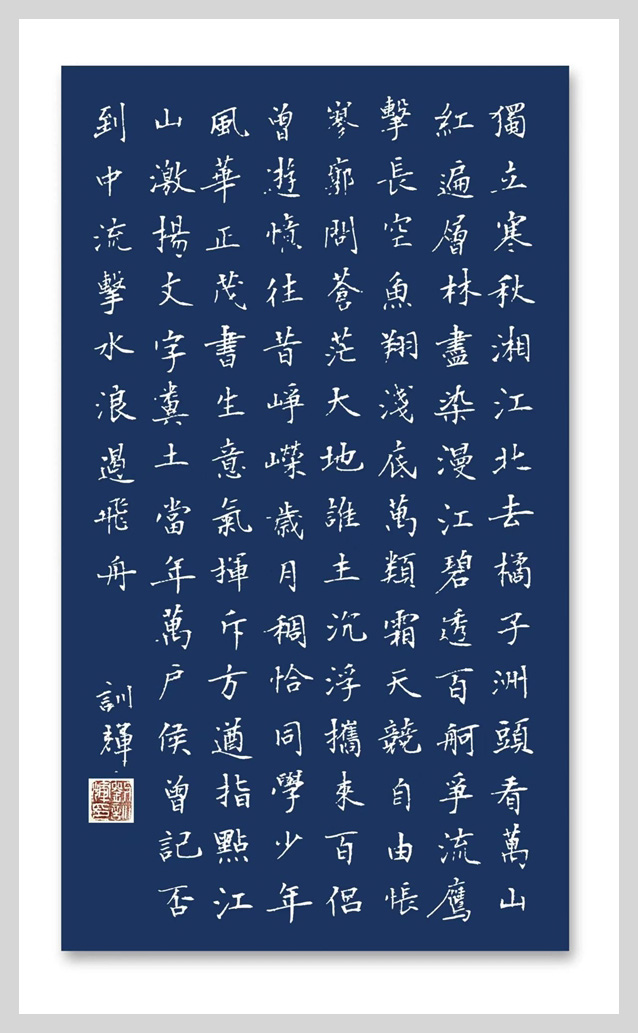 獨立寒秋湘江北去橘子洲頭看萬山
紅遍層林盡染漫江碧透百舸爭流鷹
擊長空魚翔淺底萬類霜天競自由悵
寥廓問蒼茫大地誰主沉浮攜來百侶
曾遊憶往昔崢嶸歲月稠恰同學少年
風華正茂書生意氣揮斥方遒指點江
山激揚文字糞土當年萬户侯曾記否
到中流擊水浪遏飛舟
訓輝